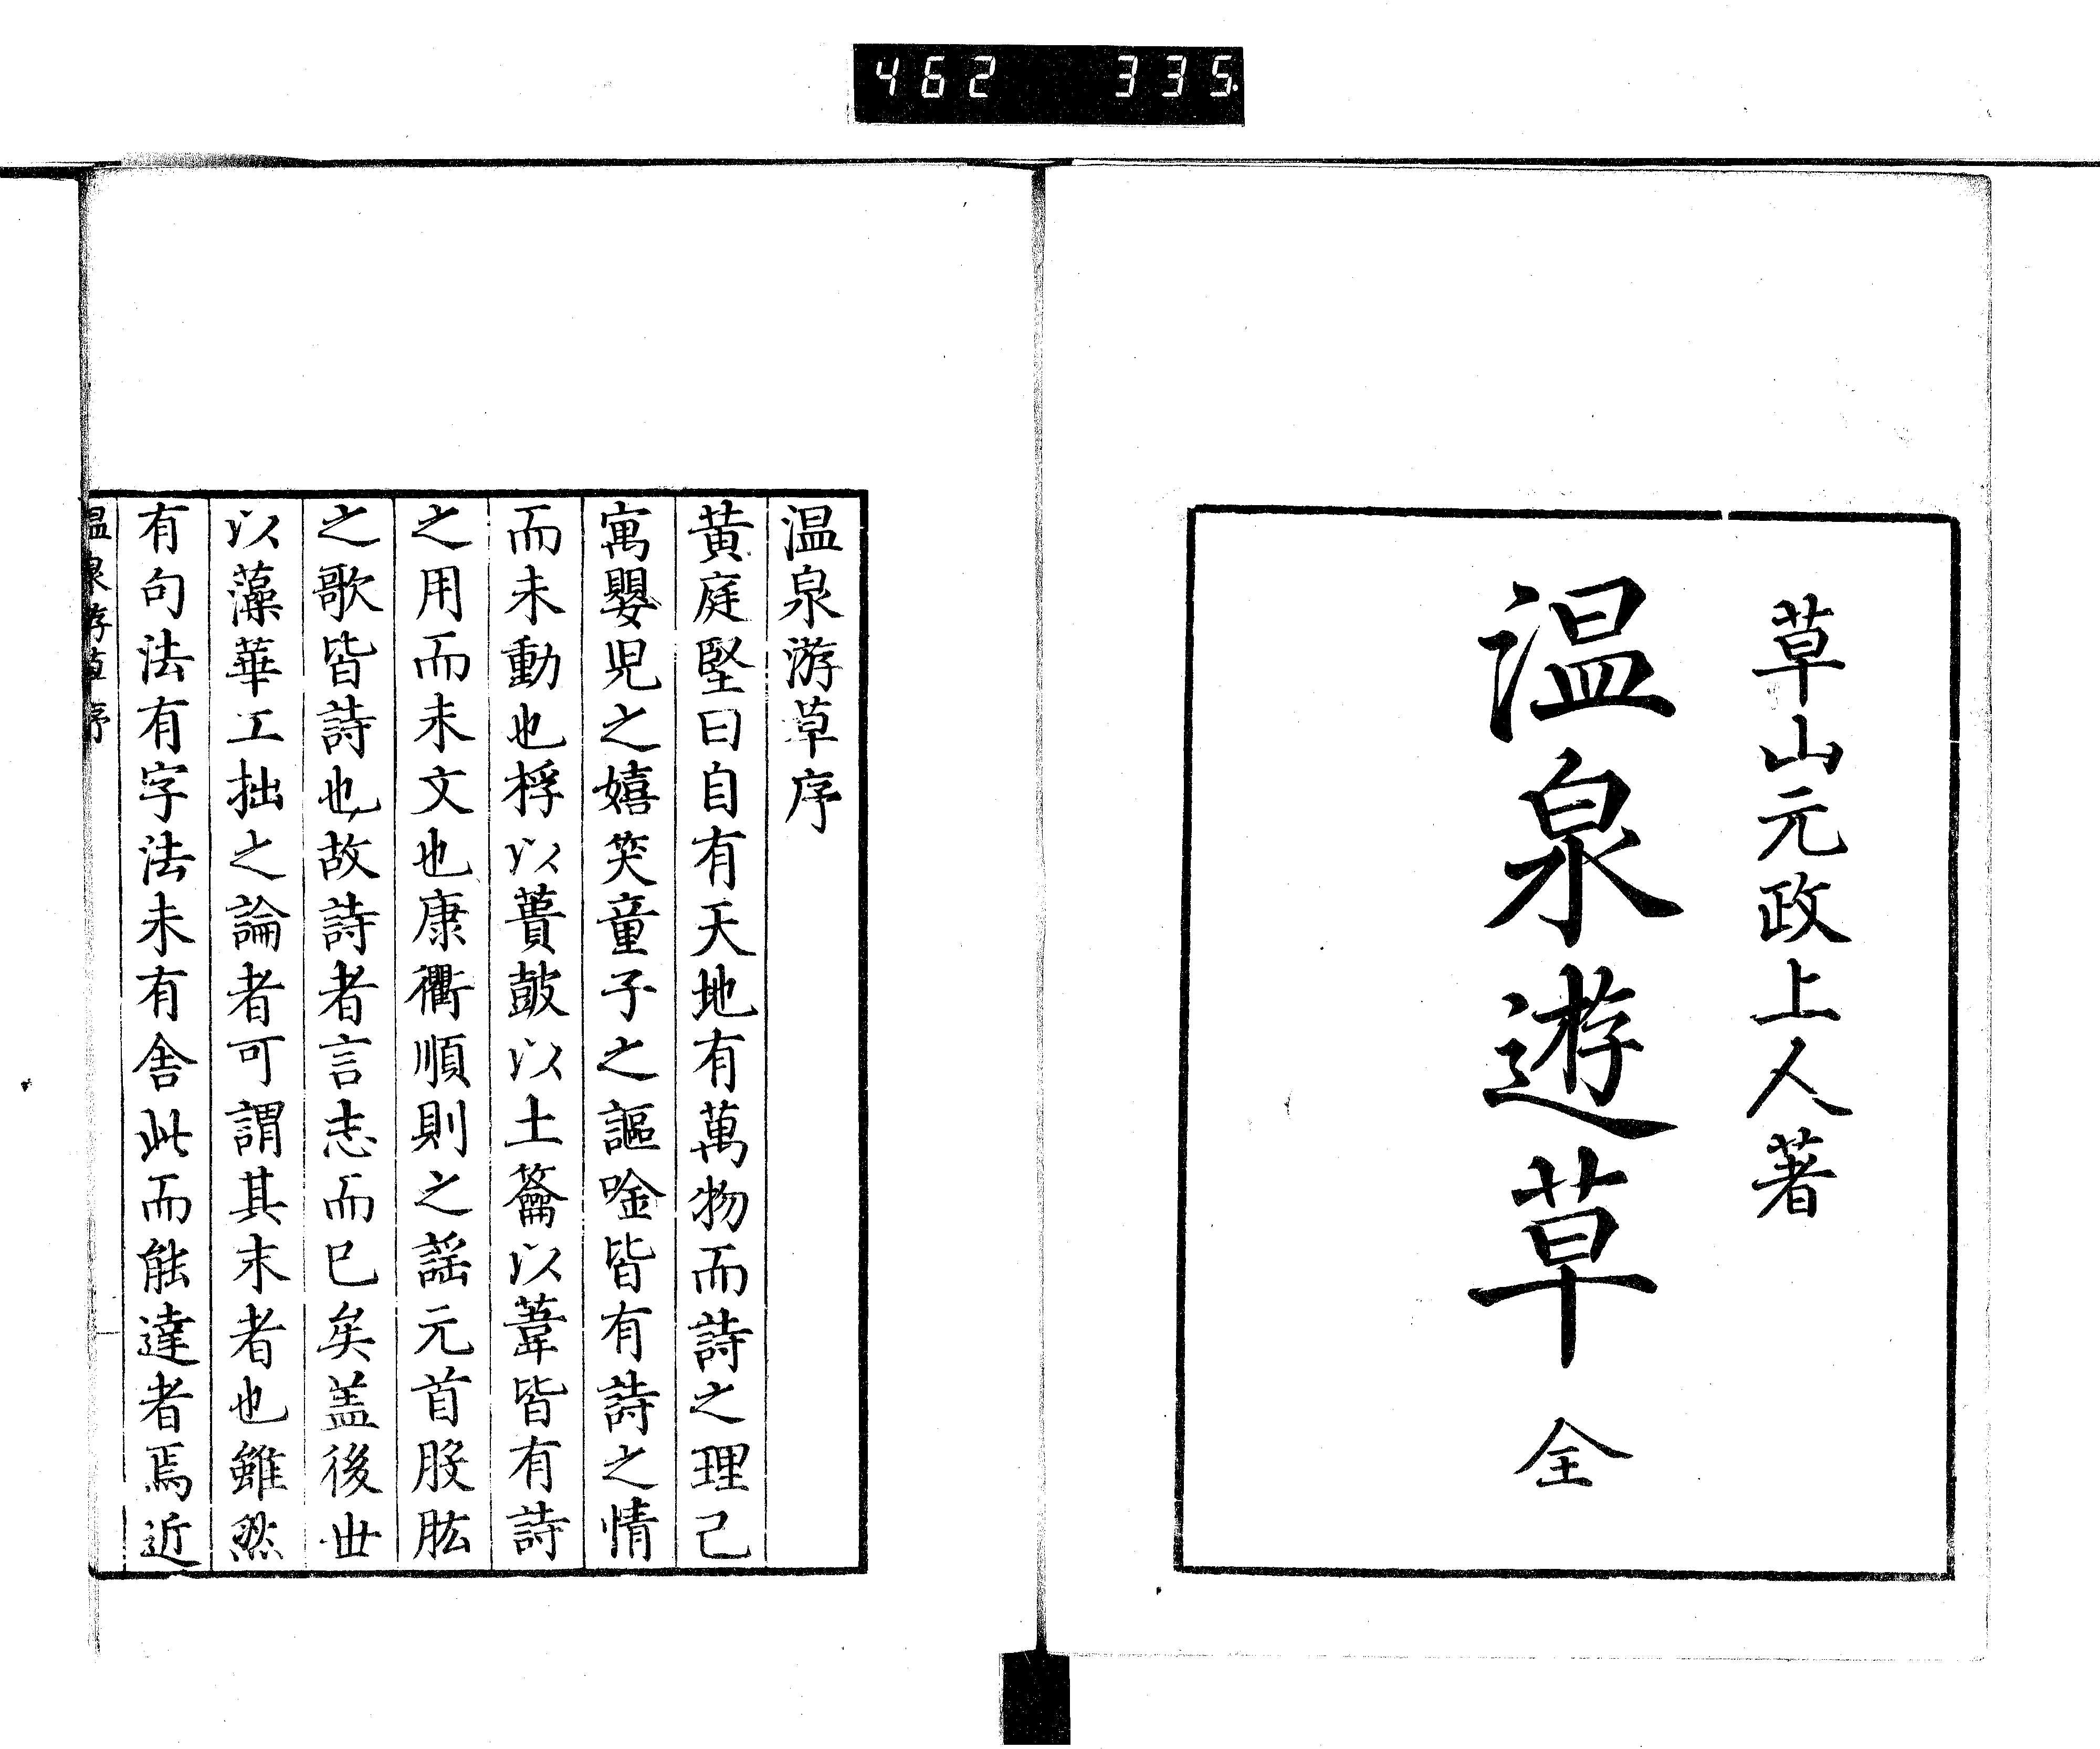 462 335
草山元政上人著
温泉遊草 全
温泉游草序
黄庭堅曰自有天地有萬物而詩之理己
寓嬰児之嬉笑童子之謳唫皆有詩之情
而未動也桴以蕢鼓以土籥以葦皆有詩
之用而未文也康衢順則之謡元首股肱
之歌皆詩也故詩者言志而已矣盖後世
以藻華工拙之論者可謂其末者也雖然
有句法有字法未有舎此而能達者焉近
温泉游草序